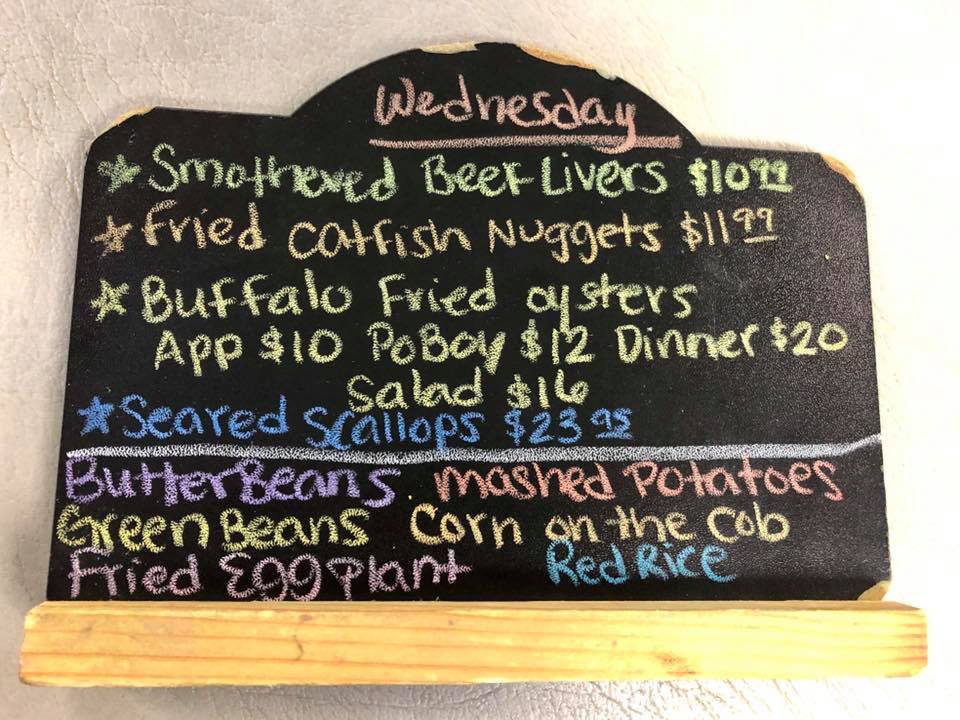 Wednesday
☆ Smothered Beef Livers $10.99
☆ Fried Catfish Nuggets $11.99
☆ Buffalo Fried oysters
App $10 PoBoy $12 Dinner $20
Salad $16
☆ Seared Scallops $23.95
Butter Beans mashed Potatoes
Green Beans Corn on the Cob
Fried Egg plant Red Rice